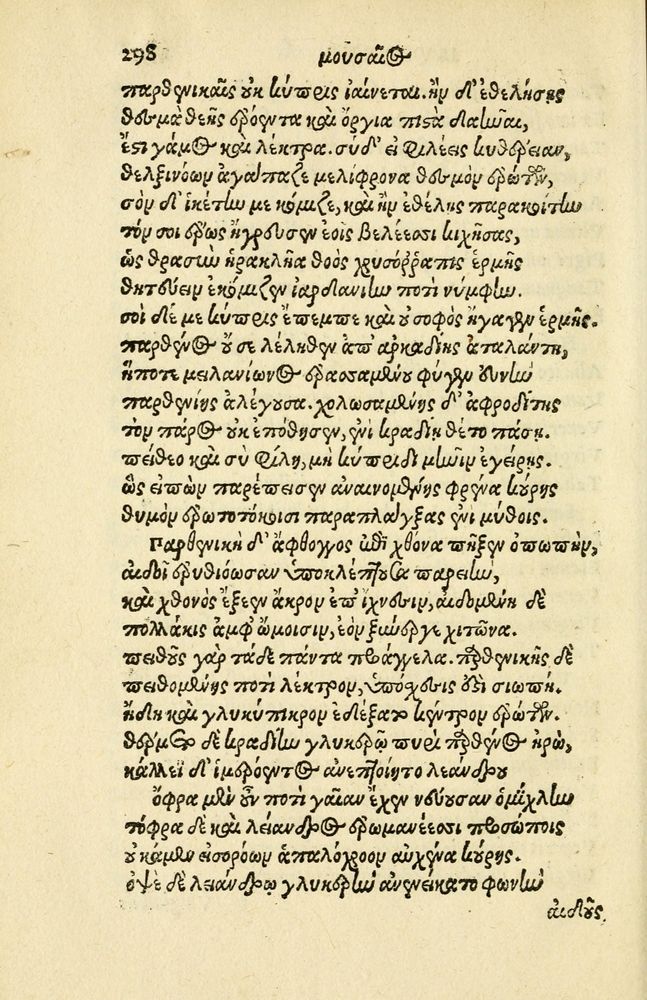 298 μουσαῖος
παρθενικαῖς οὐκ κύπρις ἰαίνεται. ἢν δ' ἐθελήσῃς
θεσμὰ θεῆς ἐρόεντα καὶ ὄργια πιστὰ δαῆναι,
ἔστι γάμος καὶ λέκτρα. σὺ δ' εἰ φιλέεις κυθέρειαν,
θελξινόων ἀγάπαζε μελίφρονα θεσμὸν ἐρώτων,
σὸν δ' ἱκέτην με κόμιζε, καὶ ἢν ἐθέλῃς παρακοίτην
τόν σοι ἔρως ἤγρευσεν ἑοῖς βελέεσσι κιχήσας,
ὡς θρασὺν ἡρακλῆα θοὸς χρυσόῤῥαπις ἑρμῆς
θητεύειν ἐκόμιζεν ἰαρδανίην ποτὶ νύμφην.
σοὶ δέ με κύπρις ἔπεμπε καὶ οὐ σοφὸς ἤγαγεν ἑρμῆς.
παρθένος οὔ σε λέληθεν ἀπ' ἀρκαδίης ἀταλάντη,
ἥ ποτε μειλανίωνος ἐρασσαμένου φύγεν εὐνὴν
παρθενίης ἀλέγουσα. χολωσαμένης δ' ἀφροδίτης
τὸν πάρος οὐκ ἐπόθησεν, ἐνὶ κραδίῃ θέτο πάσῃ.
πείθεο καὶ σὺ φίλη, μὴ κύπριδι μῆνιν ἐγείρῃς.
ὣς εἰπὼν παρέπεισεν ἀναινομένης φρένα κούρης
θυμὸν ἐρωτοτόκοισι παραπλάγξας ἐνὶ μύθοις.
Παρθενικὴ δ' ἄφθογγος ἐπὶ χθόνα πῆξεν ὀπωπὴν,
αἰδοῖ ἐρυθιόωσαν ὑποκλέπτουσα παρειὴν,
καὶ χθονὸς ἔξεεν ἄκρον ἐπ' ἴχνεσιν, αἰδομένη δὲ
πολλάκις ἀμφ' ὤμοισιν, ἑὸν ξυνέεργε χιτῶνα.
πειθοῦς γὰρ τάδε πάντα προάγγελα. παρθενικῆς δὲ
πειθομένης ποτὶ λέκτρον, ὑπόσχεσίς ἐστι σιωπή.
ἤδη καὶ γλυκύπικρον ἐδέξατο κέντρον ἐρώτων.
θέρμετο δὲ κραδίην γλυκερῷ πυρὶ παρθένος ἡρὼ,
κάλλεϊ δ' ἱμερόεντος ἀνεπτοίητο λεάνδρου
ὄφρα μὲν οὖν ποτὶ γαῖαν ἔχεν νεύουσαν ὀμίχλην
τόφρα δὲ καὶ λέιανδρος ἐρωμανέεσσι προσώποις
οὐ κάμεν εἰσορόων ἁπαλόχροον αὐχένα κούρης.
ὀψὲ δὲ λειάνδρῳ γλυκερὴν ἀνενείκατο φωνὴν
αἰδοῦς